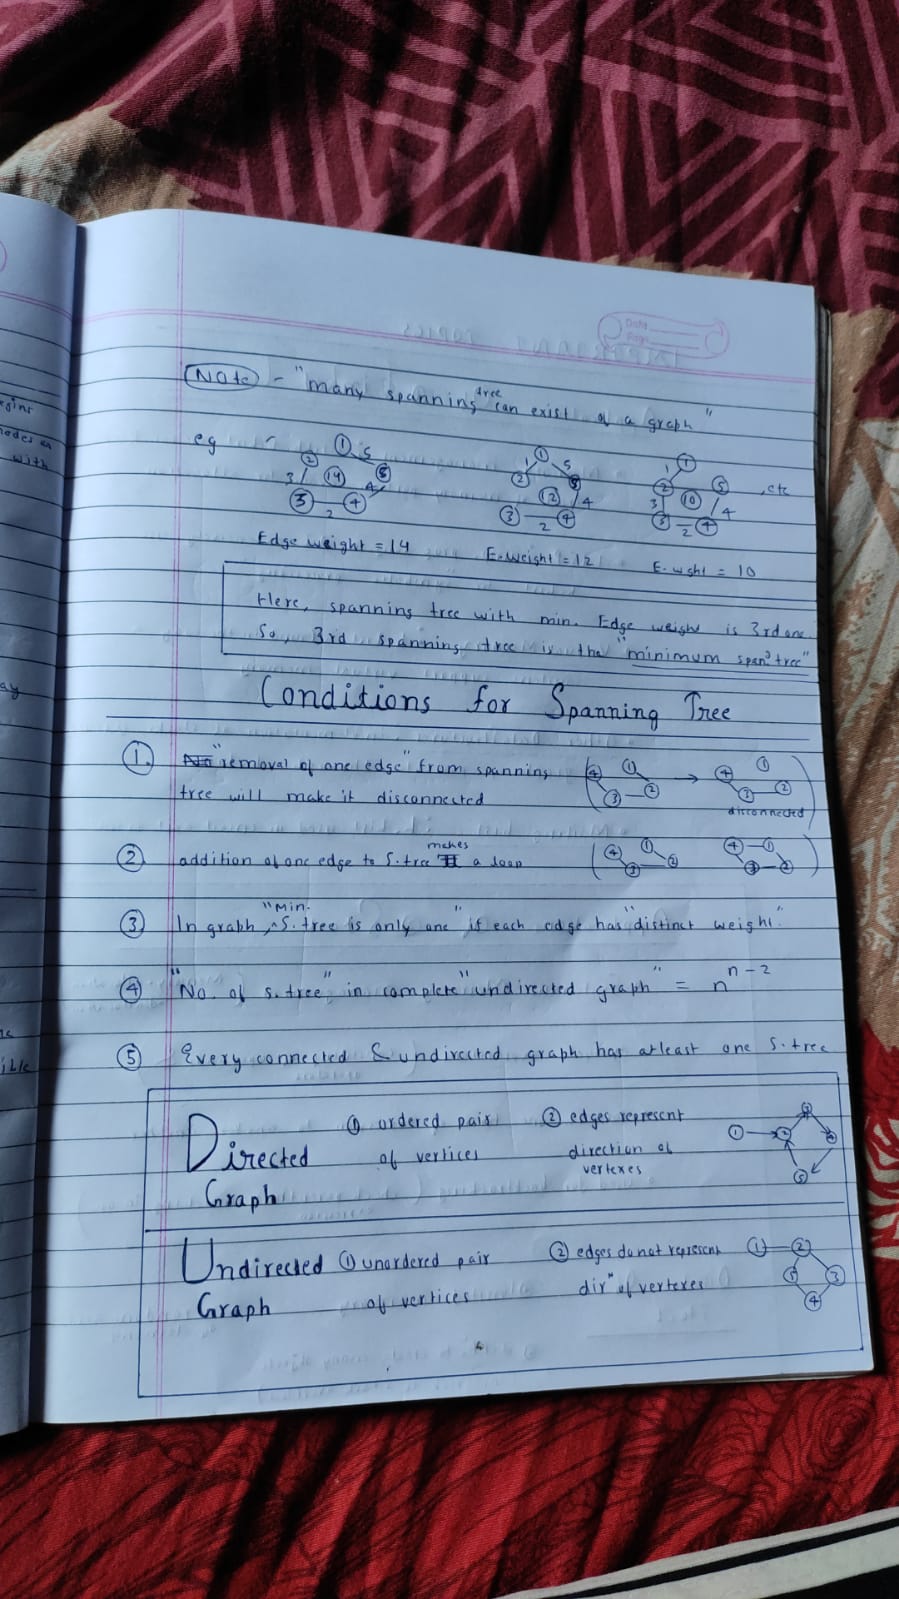 Date
Page
Note - "many spanning tree can exist of a graph"
eg -
1 5 2 5 3 14 4 3 4 2
1 1 5 2 5 12 4 3 4 2
1 1 2 5 3 10 4 3 2 4 , etc
Edge weight = 14 E. weight = 12 E. wght = 10
Here, spanning tree with min. Edge weight is 3rd one.
So, 3rd spanning tree is the "minimum span° tree"
Conditions for Spanning Tree
1. "removal of one edge" from spanning
tree will make it disconnected
4 1 3 2 → 4 1 3 2
disconnected
2 addition of one edge to S.tree makes a loop
4 1 3 2 4 1 3 2
3 In graph, "Min. S.tree is only one" if each edge has "distinct weight"
4 "No. of s.tree" in complete "undirected graph" = n^n-2
5 Every connected & undirected graph has atleast one S.tree
Directed
Graph
1 ordered pair
of vertices
2 edges represent
direction of
vertexes
1 2 3 4 5
Undirected
Graph
1 unordered pair
of vertices
2 edges do not represent
dirⁿ of vertexes
1 2 3 4 5
egins
nodes
with
ay
ible